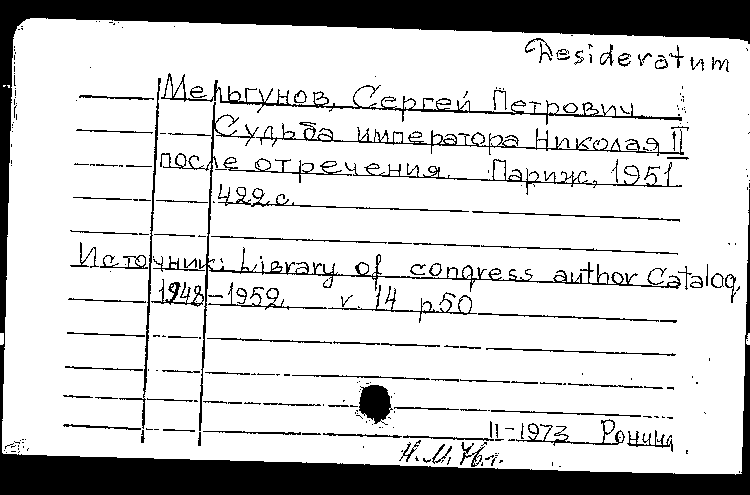 Desideratum
Мельгунов, Сергей Петрович
Судьба императора Николая II
после отречения. Париж, 1951
422 с.
Источник: Library of congress author Catalog
1948-1952. v. 14 p50
II-1973 Ронина